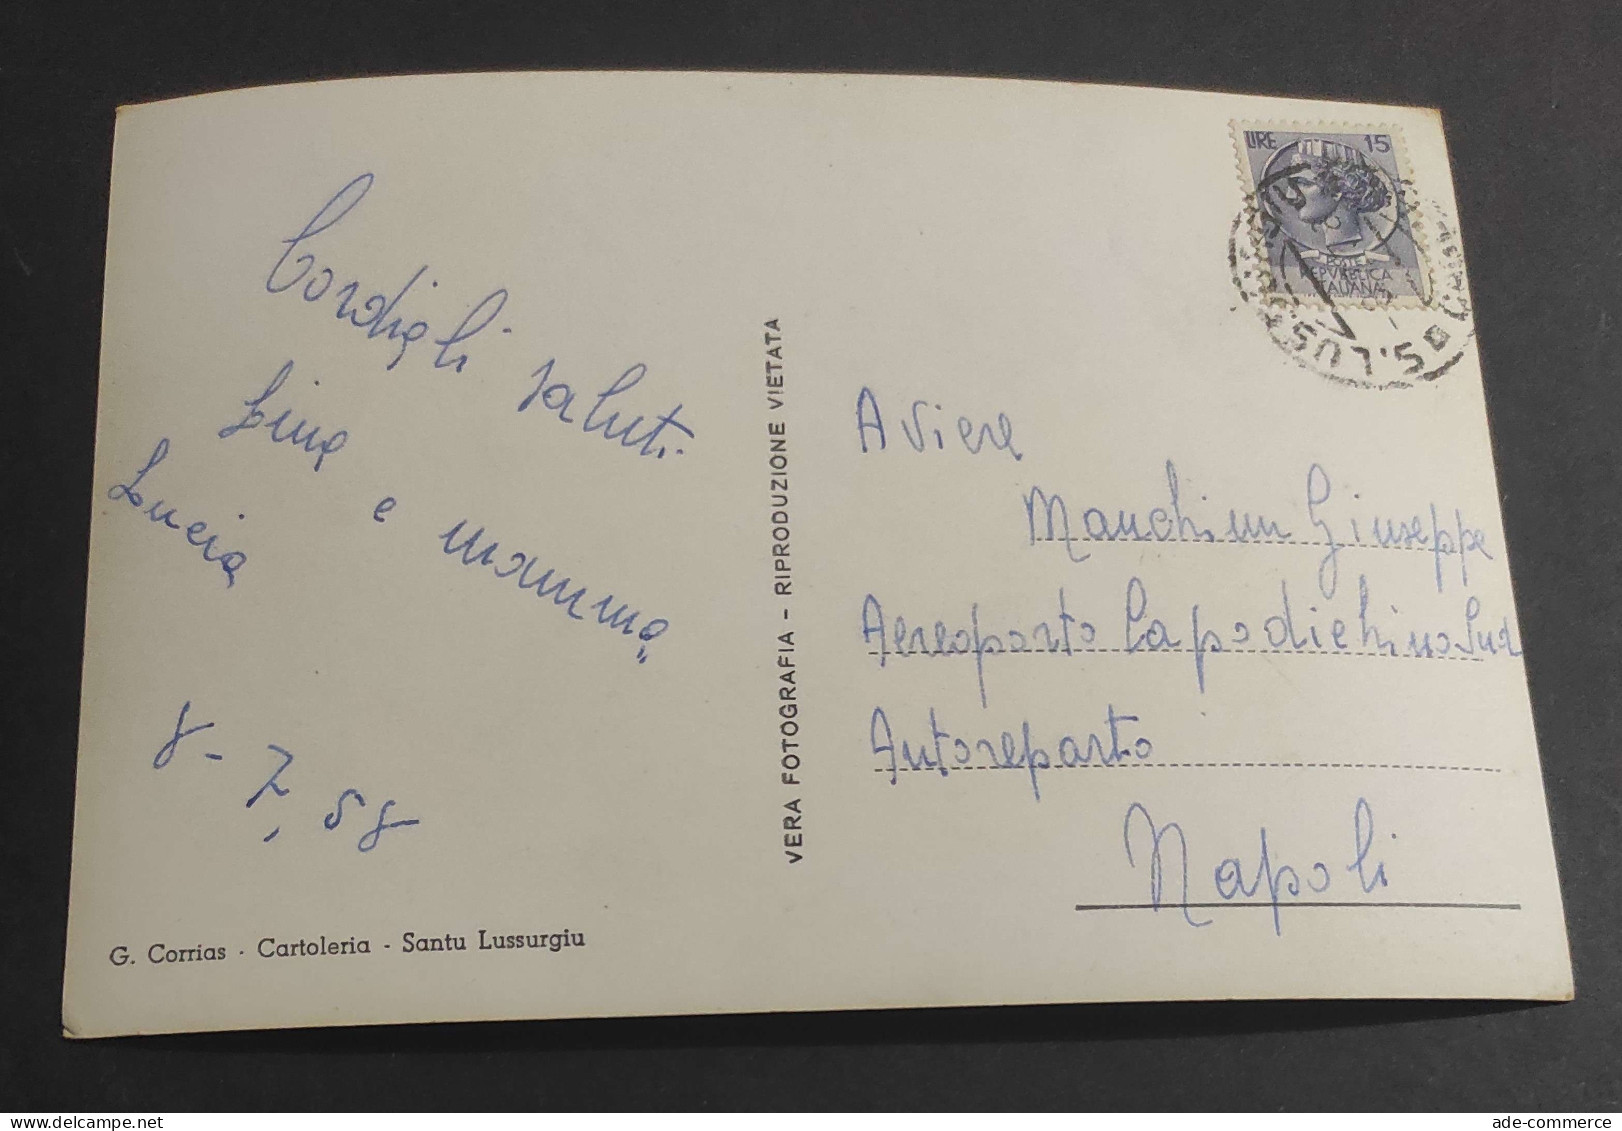 Cordiali saluti.
Lina e mamma
Lucia
8-7,58
G. Corrias · Cartoleria - Santu Lussurgiu
VERA FOTOGRAFIA - RIPRODUZIONE VIETATA
LIRE 15
POSTE
REPVBBLICA
ITALIANA
Aviere
Giuseppe
Aereoporto Capodichino Sud
Autoreparto
Napoli
ade-commerce